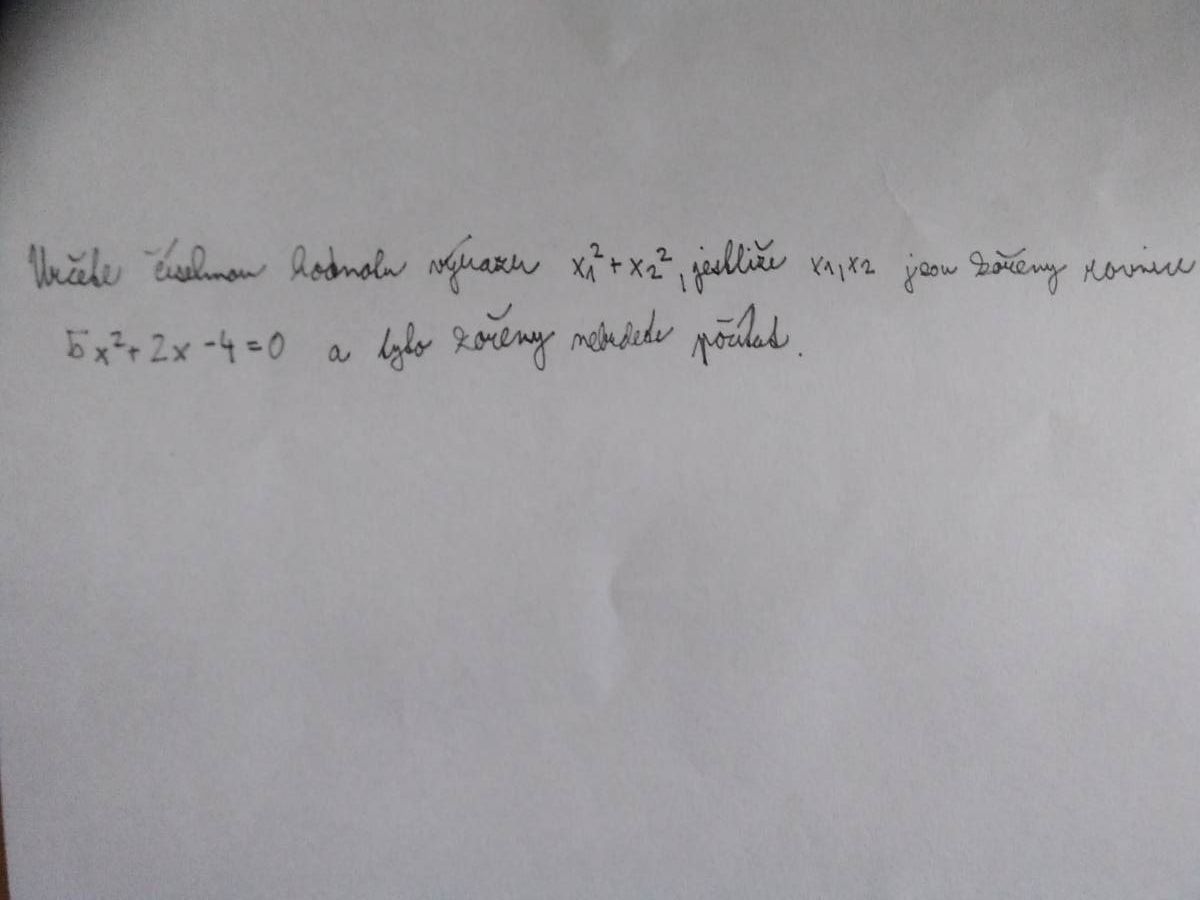 Určete číselnou hodnotu výrazu x₁² + x₂², jestliže x₁, x₂ jsou kořeny rovnice
5x² + 2x - 4 = 0 a tyto kořeny nebudete počítat.